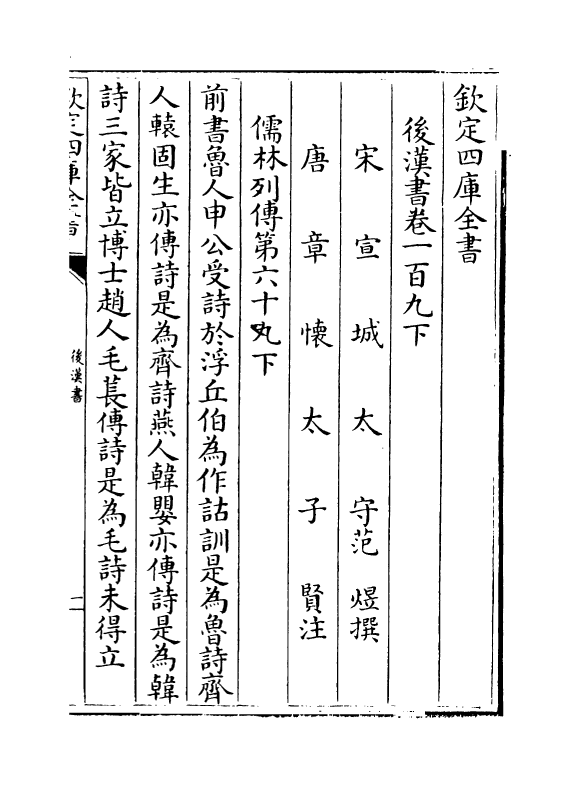 欽定四庫全書
後漢書卷一百九下
宋宣城太守范煜撰
唐章懷太子賢注
儒林列傳第六十九下
前書魯人申公受詩於浮丘伯為作詁訓是為魯詩齊
人轅固生亦傳詩是為齊詩燕人韓嬰亦傳詩是為韓
詩三家皆立博士趙人毛萇傳詩是為毛詩未得立
欽定四庫全書
後漢書
一